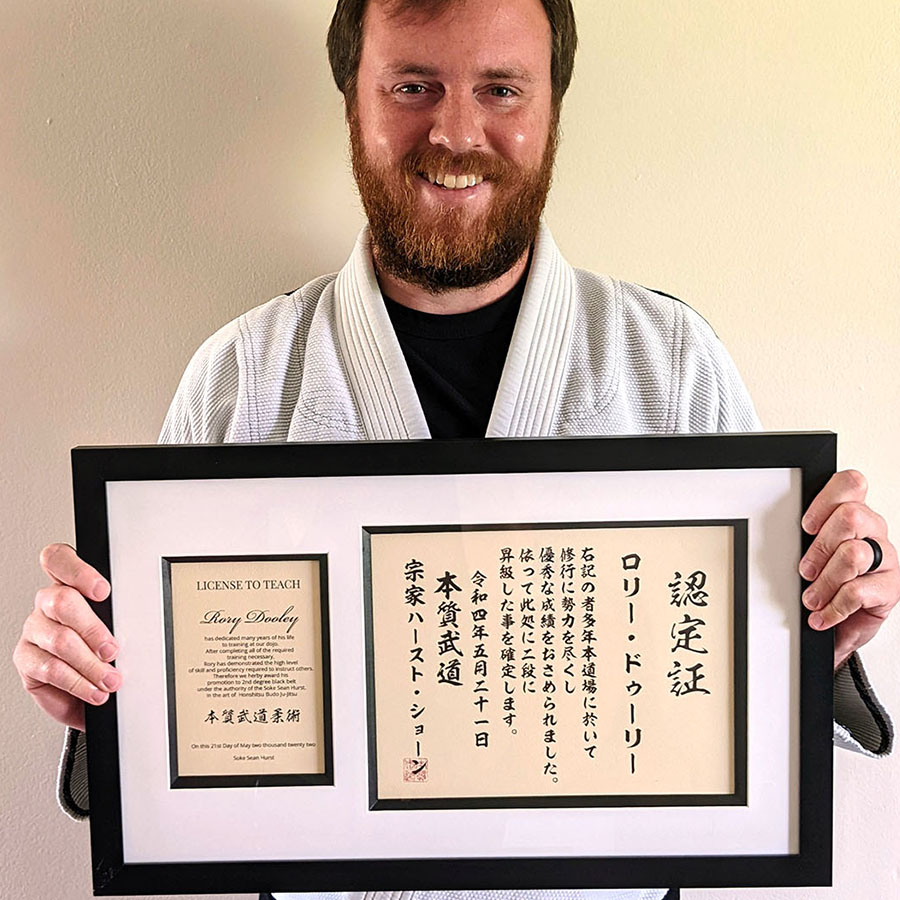 LICENSE TO TEACH
Rory Dooley
has dedicated many years of his life
to training at our dojo.
After completing all of the required
training necessary.
Rory has demonstrated the high level
of skill and proficiency required to instruct others.
Therefore we herby award his
promotion to 2nd degree black belt
under the authority of the Soke Sean Hurst.
In the art of Honshitsu Budo Ju-Jitsu
本質武道柔術
On this 21st Day of May two thousand twenty two
Soke Sean Hurst
認定証
ロリー・ドゥーリー
右記の者多年本道場に於いて
修行に勢力を尽くし
優秀な成績をおさめられました。
依って此処に二段に
昇級した事を確定します。
令和四年五月二十一日
本質武道
宗家ハースト・ショーン